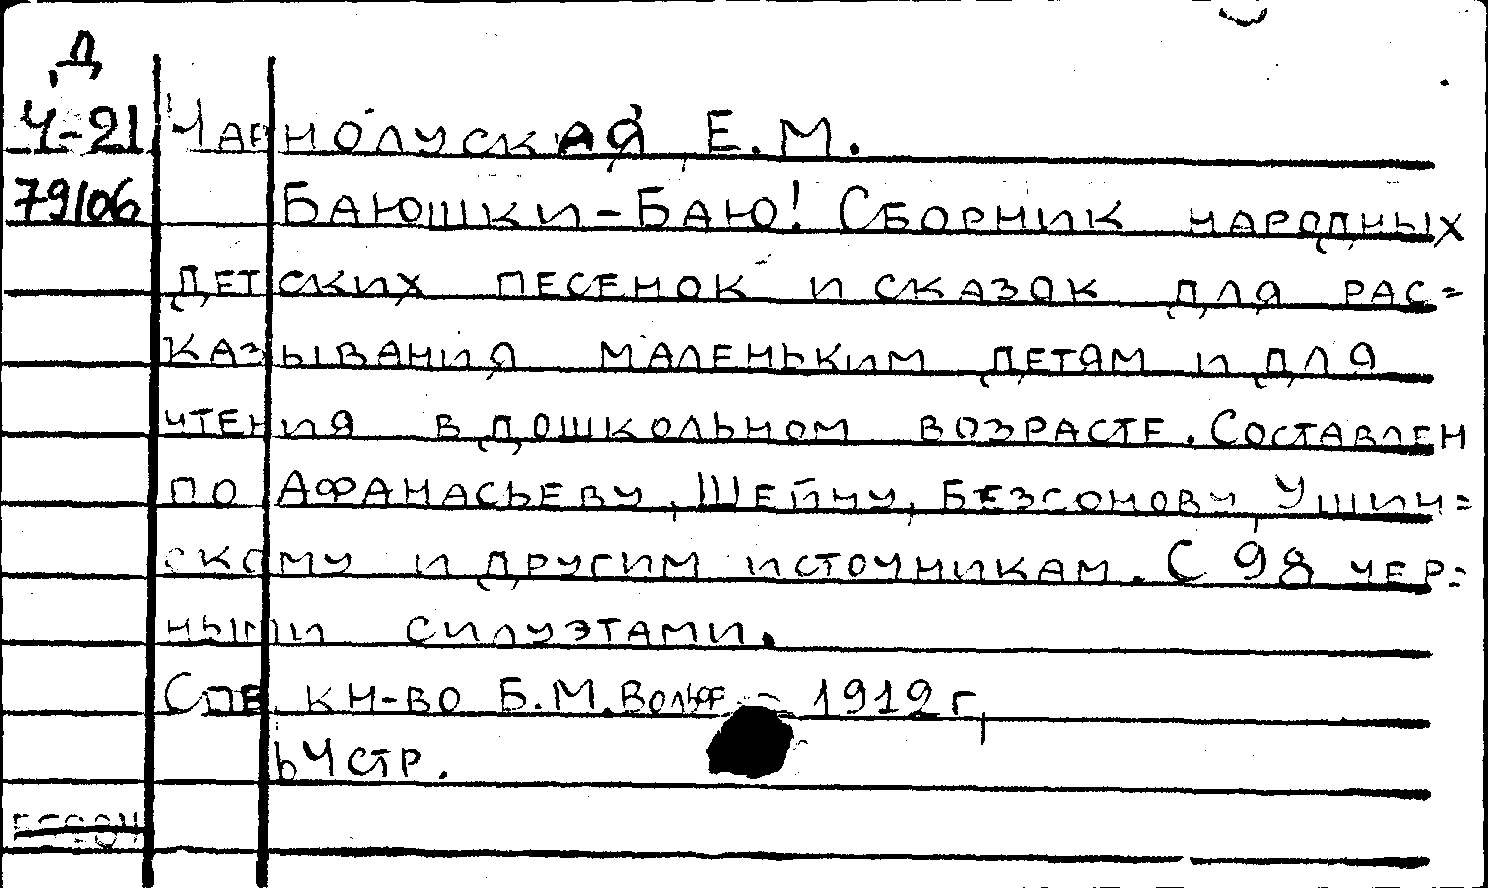 Д
Ч-21 Чарнолуская Е.М.
79106 Баюшки-баю! Сборник народных
детских песенок и сказок для рас=
казывания маленьким детям и для
чтения в дошкольном возрасте. Составлен
по Афанасьеву, Шейну, Безсонову, Ушин=
скому и другим источникам. С 98 чер=
ными силуэтами.
СПБ, кн-во Б.М.Вольф 1912 г,
64 стр.